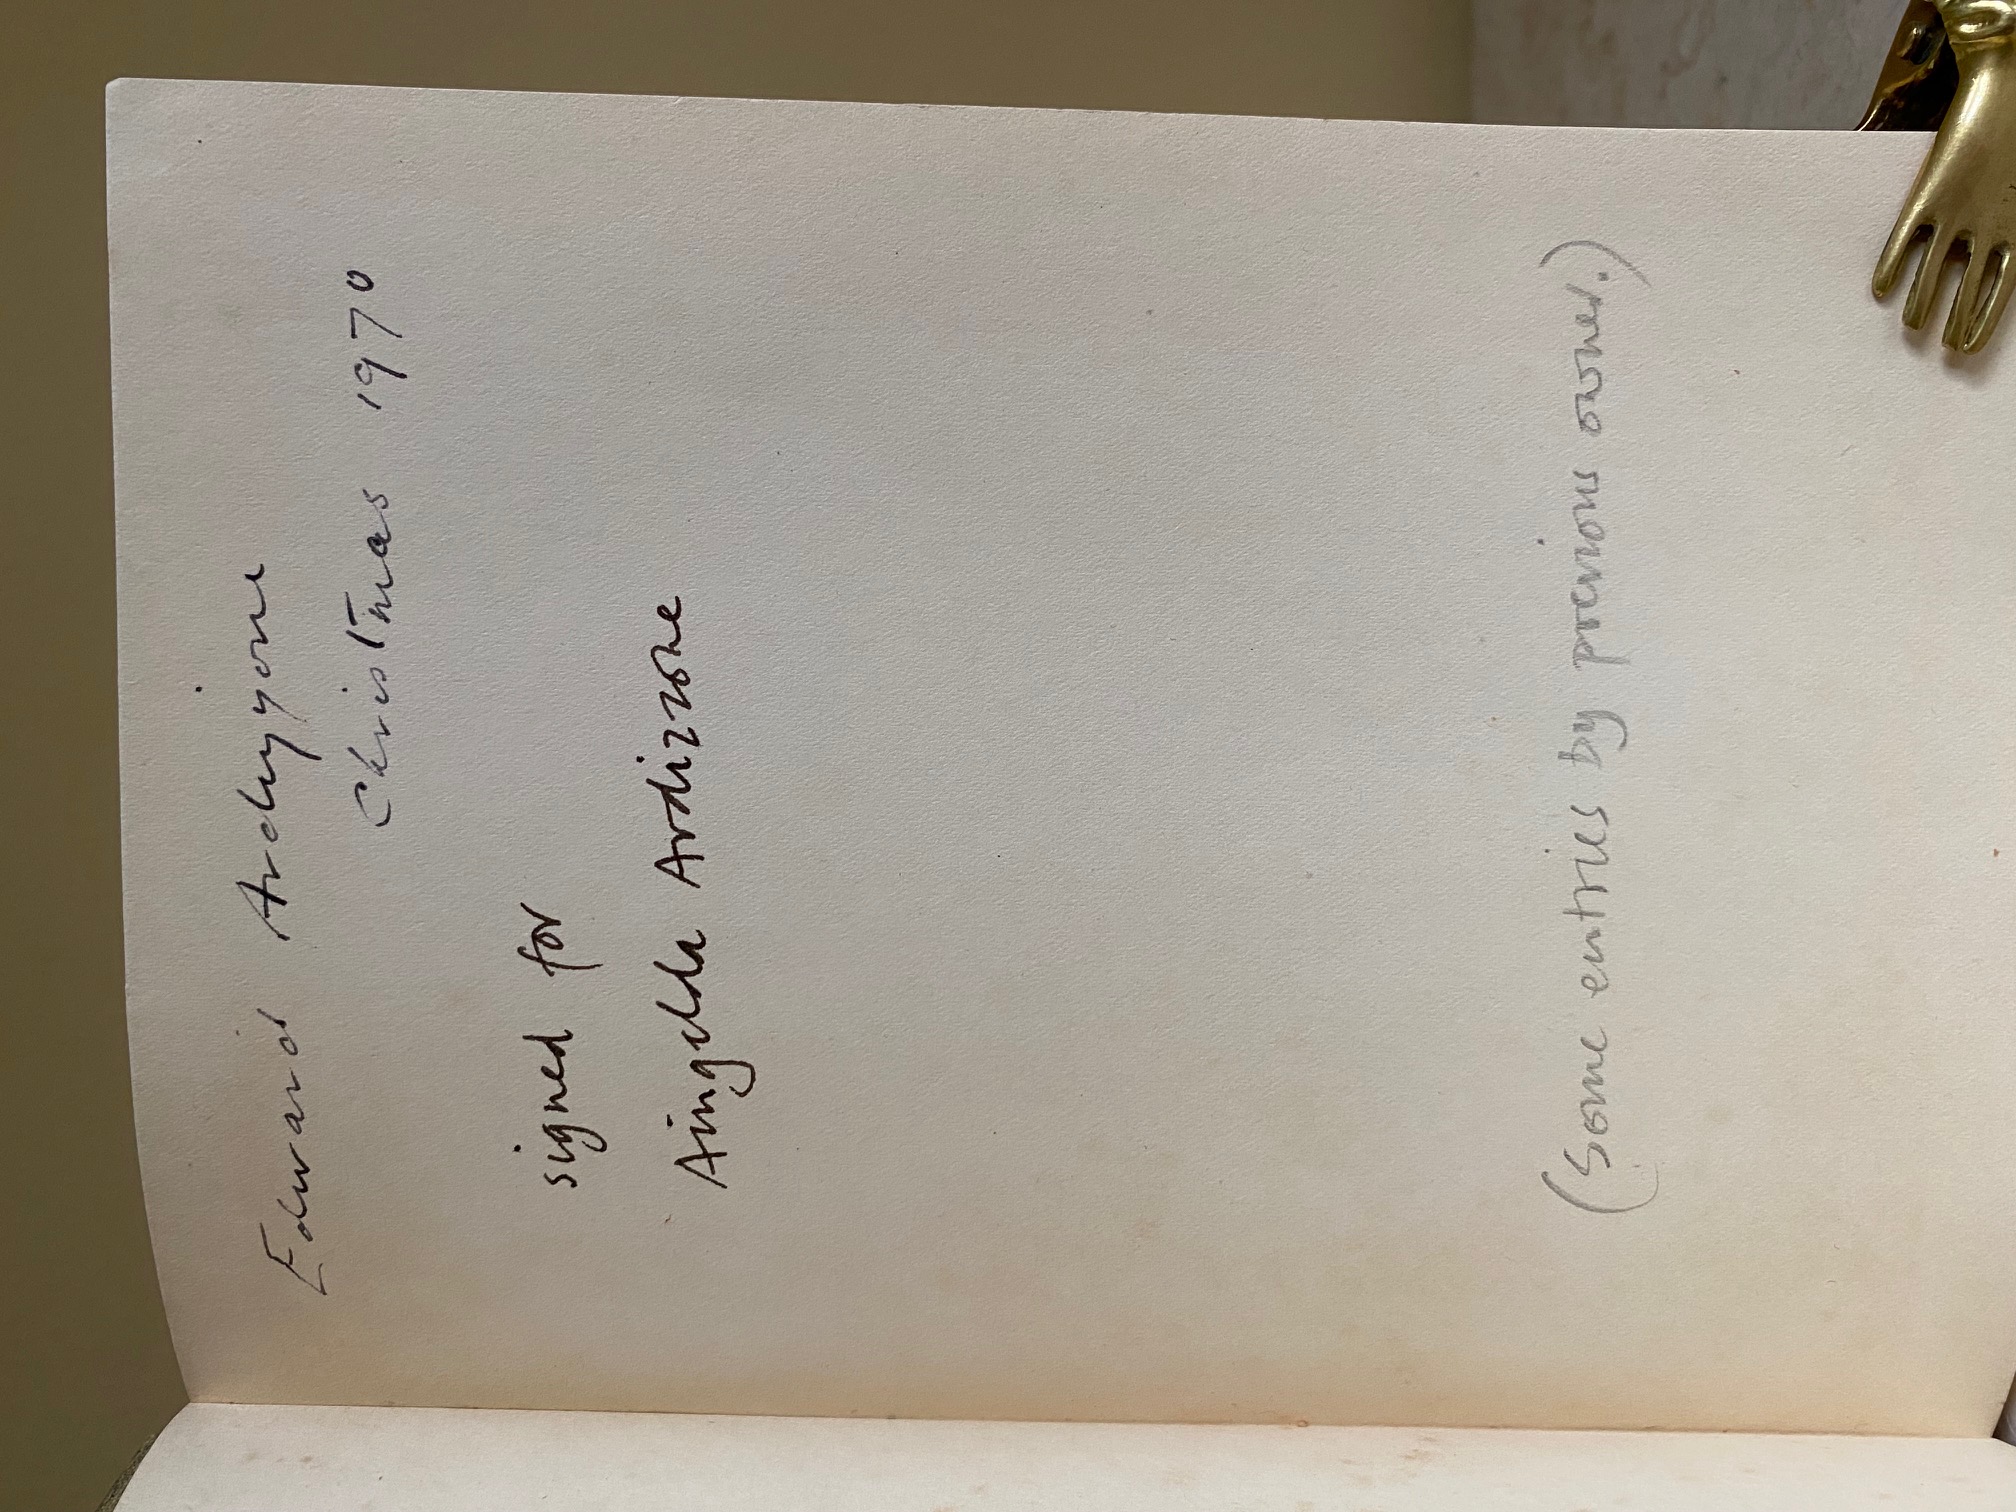 Edward Ardizzone
Christmas 1970
signed for
Aingelda Ardizzone
(Some entries by previous owner.)